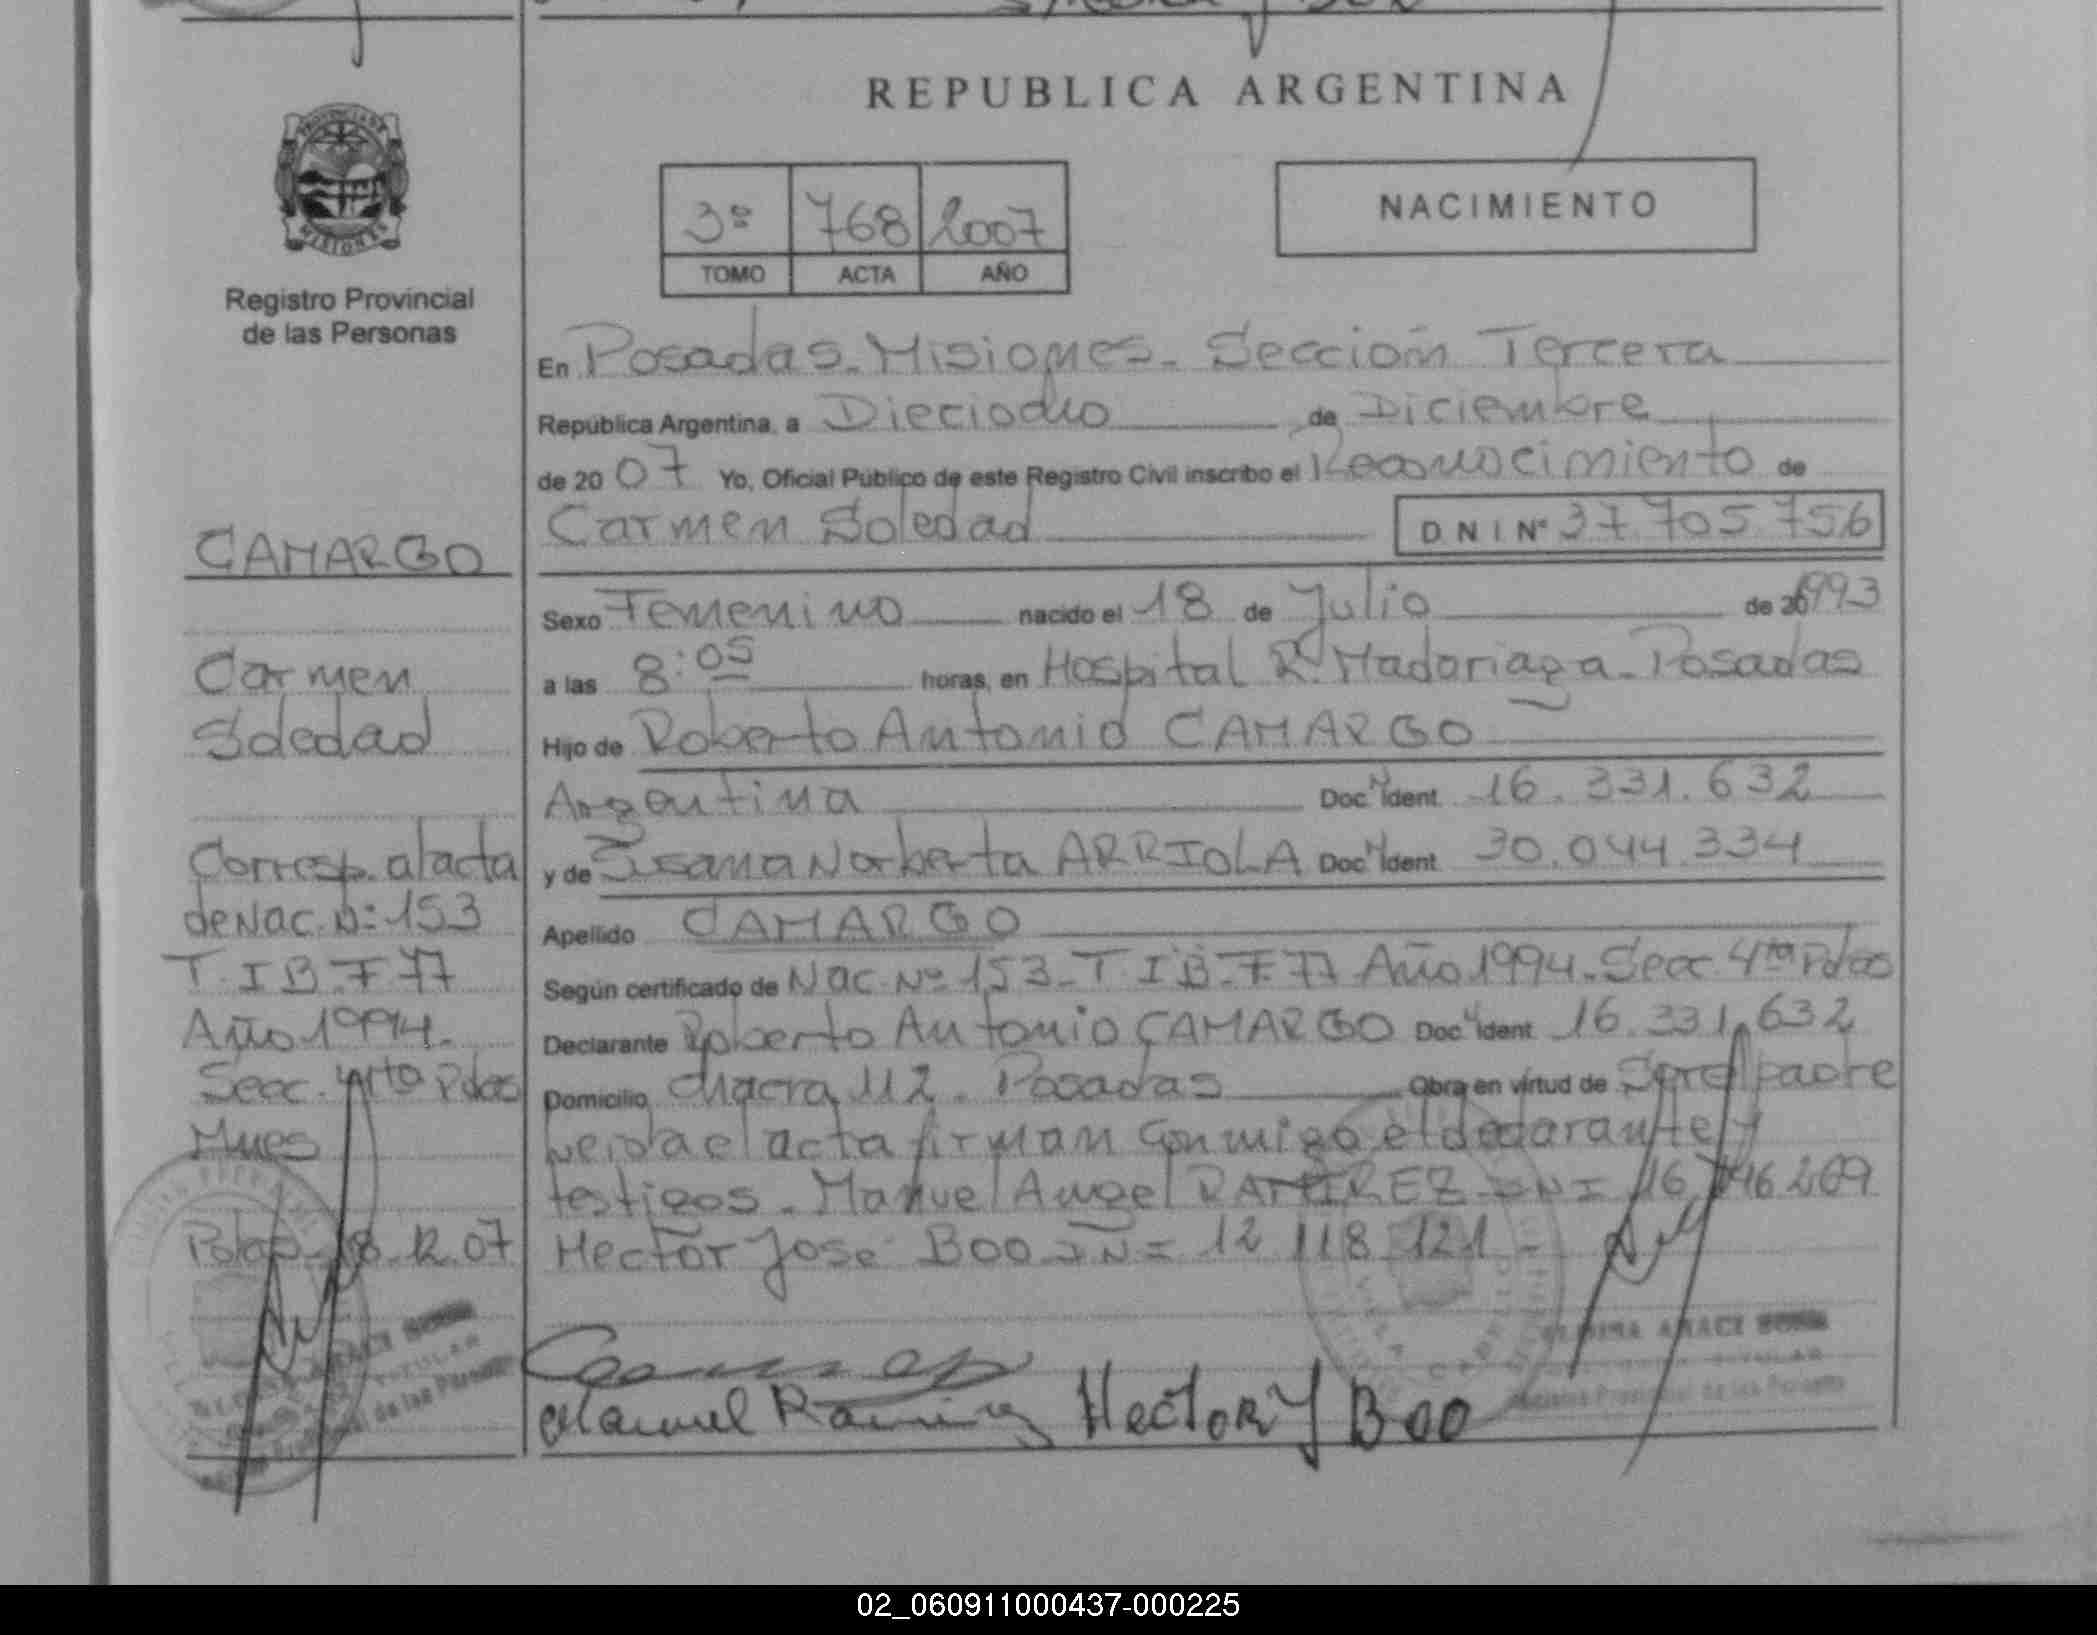 REPUBLICA ARGENTINA
3º 768 2007
TOMO ACTA AÑO
NACIMIENTO
PROVINCIA DE
MISIONES
Registro Provincial
de las Personas
En Posadas - Misiones - Sección Tercera
República Argentina, a Dieciocho de Diciembre
de 2007 Yo, Oficial Público de este Registro Civil inscribo el Reconocimiento de
Carmen Soledad DNI Nº 37.705.756
Sexo Femenino nacido el 18 de Julio de 1993
a las 8:05 horas, en Hospital R. Madariaga - Posadas
Hijo de Roberto Antonio CAMARGO
Argentina Doc. Ident. 16.331.632
y de Susana Norberta ARRIOLA Doc. Ident. 30.044.334
Apellido CAMARGO
Según certificado de Nac. Nº 153 - T. I B. F. 77 Año 1994 - Secc 4ta Pdas
Declarante Roberto Antonio CAMARGO Doc. Ident. 16.331.632
Domicilio Chacra 112 - Posadas Obra en virtud de Ser el padre
Leida el acta firman conmigo el declarante y
testigos - Manuel Angel RAMIREZ DNI 16
Hector José BOO 12.118.121 -
Manuel Ramirez Hector J Boo
CAMARGO
Carmen
Soledad
Corresp. al acta
de Nac. Nº 153
T. I B. F. 77
Año 1994.
Secc. 4rta Pdas
Mnes
Pdas 18.12.07
02_060911000437-000225